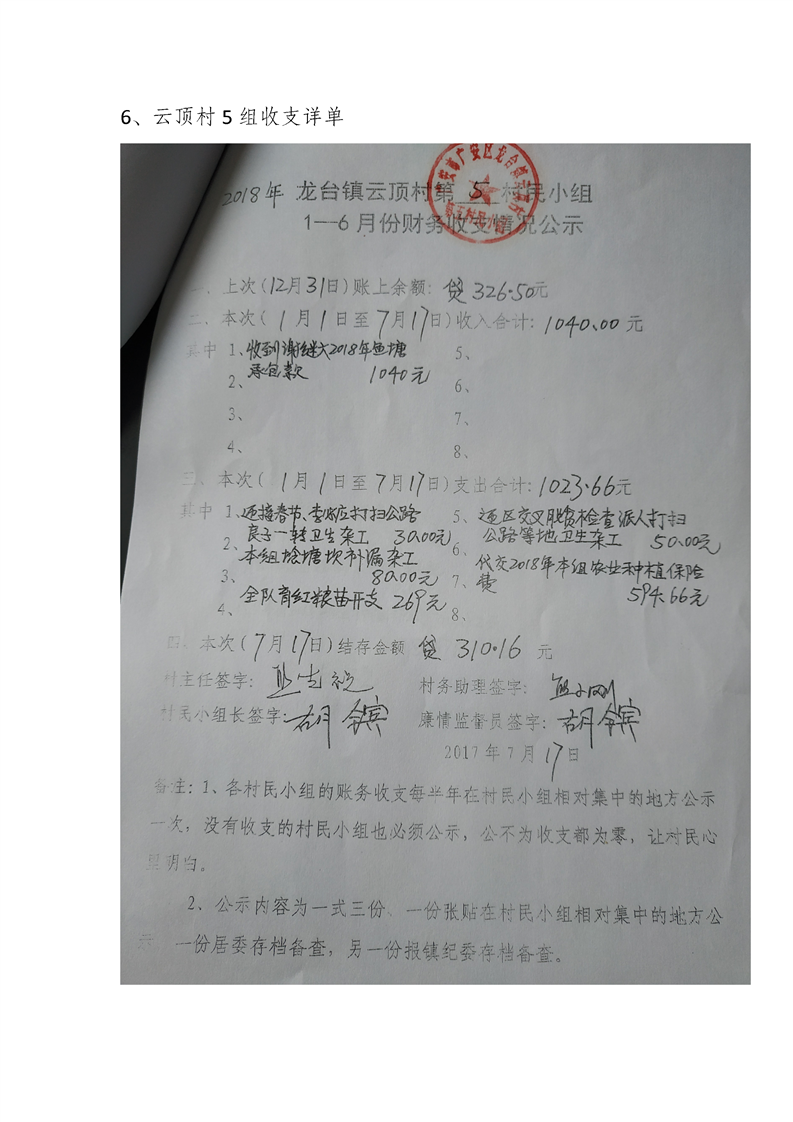 6、云顶村 5 组收支详单
2018年 龙台镇云顶村第 5 村民小组
1—6 月份财务收支情况公示
一、上次(12月31日)账上余额: 贷 326.50元
二、本次( 1月1日至7月17日)收入合计: 1040.00 元
其中 1、收到谢继六2018年鱼塘 5、
2、承包款 1040元 6、
3、 7、
4、 8、
三、本次( 1月1日至7月17日)支出合计: 1023.66元
其中 1、迎接春节、李家应打扫公路 5、迎区交叉脱贫检查派人打扫
2、良子一转卫生杂工 30.00元 公路等地卫生杂工 50.00元
本组 塘坎补漏杂工 6、代交2018年本组农业种植保险
3、 80.00元 7、费 594.66元
4、全队育红粮苗开支 269元 8、
四、本次(7月17日)结存金额 贷 310.16 元
村主任签字: 村务助理签字:
村民小组长签字: 胡镔 廉情监督员签字: 胡镔
2017 年 7 月 17 日
备注: 1、各村民小组的账务收支每半年在村民小组相对集中的地方公示
一次, 没有收支的村民小组也必须公示, 公不为收支都为零, 让村民心
里明白。
2、公示内容为一式三份、一份张贴在村民小组相对集中的地方公
示 一份居委存档备查, 另一份报镇纪委存档备查。